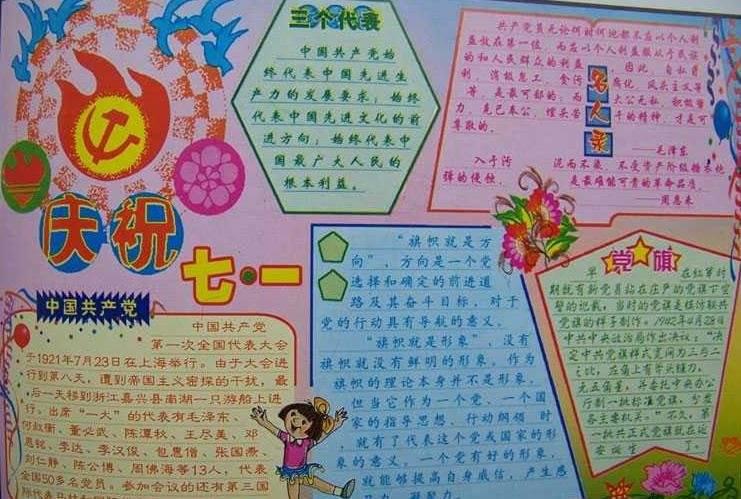 三个代表
中国共产党始
终代表中国先进生
产力的发展要求；始终
代表中国先进文化的前
进方向；始终代表中
国最广大人民的
根本利益。
共产党员无论何时何地都不应以个人利
益放在第一位，而应以个人利益服从于民族
的和人民群众的利益。因此，自私自
利，消极怠工，贪污腐化，风头主义等
等，是最可鄙的；而大公无私，积极努
力，克己奉公，埋头苦干的精神，才是可
尊敬的。
——毛泽东
入于污泥而不染，不受资产阶级糖衣炮
弹的侵蚀，是最难能可贵的革命品质。
——周恩来
名人录
庆祝
七·一
中国共产党
中国共产党
第一次全国代表大会
于1921年7月23日在上海举行。由于大会进
行到第八天，遭到帝国主义密探的干扰，最
后一天移到浙江嘉兴县南湖一只游船上进
行。出席“一大”的代表有毛泽东、
何叔衡、董必武、陈潭秋、王尽美、邓
恩铭、李达、李汉俊、包惠僧、张国焘、
刘仁静、陈公博、周佛海等13人，代表
全国50多名党员。参加会议的还有第三国
“旗帜就是方
向”，方向是一个党
选择和确定的前进道
路及其奋斗目标，对于
党的行动具有导航的意义。
“旗帜就是形象”，没有
旗帜就没有鲜明的形象。作为
旗帜的理论本身并不是形象，
但当它作为一个党、一个国
家的指导思想、行动纲领时
，就有了代表这个党或国家的形
象的意义。一个党有好的形象，
就能够提高自身威信，产生感
党旗
早在红军时
期就有新党员站在庄严的党旗下宣
誓的记载，当时的党旗是模仿联共
党旗的样子制作。1942年4月28日
中共中央政治局作出决议：“决
定中共党旗样式宽阔为三与二
之比，在角上有斧头镰刀，
无五角星，并委托中央办公
厅制一批标准党旗，分发
各主要机关。”不久，第
一批共正式党旗就在延
安诞生了。